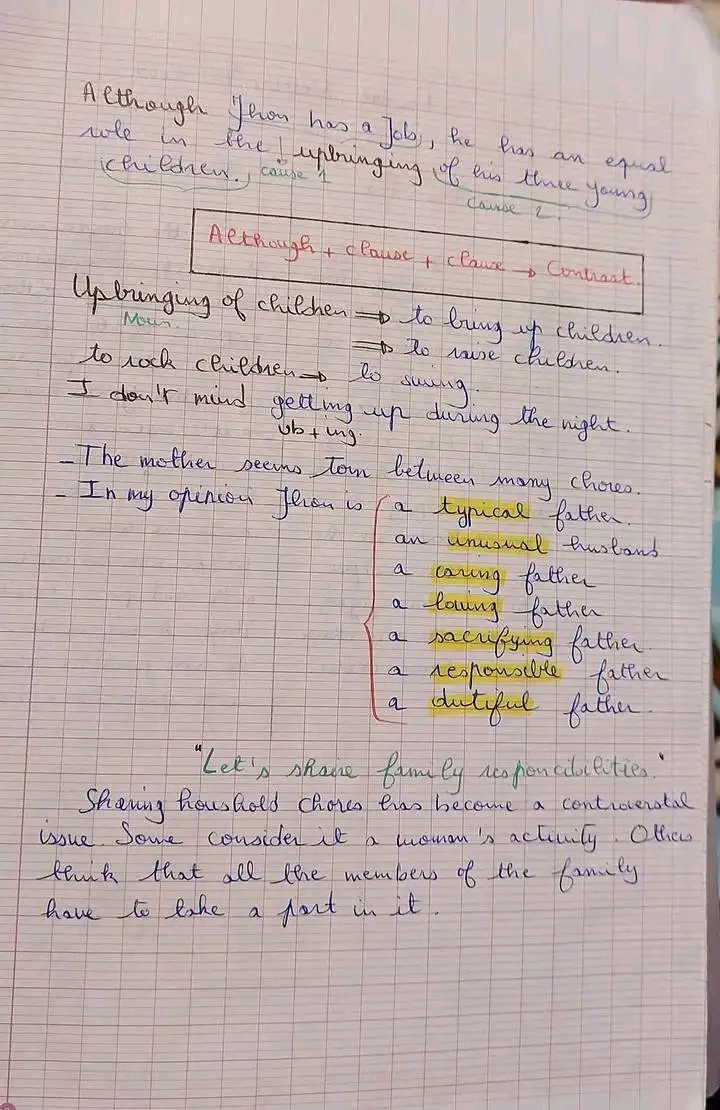 Although Jhon has a Job, he has an equal
role in the upbringing of his three young
children. clause 1
clause 2.
Although + clause + clause → Contrast.
Upbringing of children ⇒ to bring up children.
Noun.
⇒ to raise children.
to rock children → to swing.
I don't mind getting up during the night.
vb + ing.
- The mother seems torn between many chores.
- In my opinion Jhon is
a typical father.
an unusual husband
a caring father
a loving father
a sacrifying father.
a responsible father
a dutiful father.
"Let's share family responcibilities."
Sharing houshold chores has become a controverstal
issue. Some consider it a woman's activity. Others
think that all the members of the family
have to take a part in it.